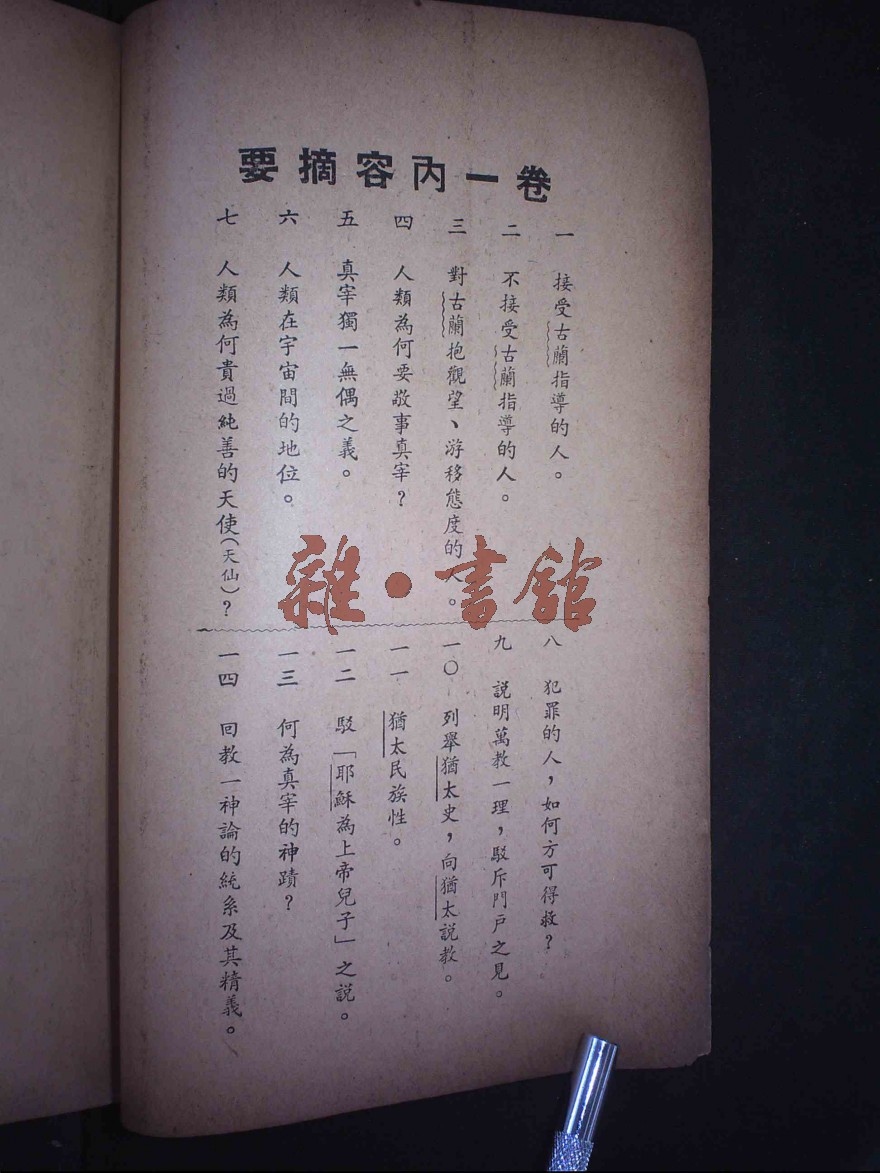 卷一內容摘要
一 接受古蘭指導的人。
二 不接受古蘭指導的人。
三 對古蘭抱觀望、游移態度的人。
四 人類為何要敬事真宰？
五 真宰獨一無偶之義。
六 人類在宇宙間的地位。
七 人類為何貴過純善的天使(天仙)？
八 犯罪的人，如何方可得救？
九 說明萬教一理，駁斥門戶之見。
一〇 列舉猶太史，向猶太說教。
一一 猶太民族性。
一二 駁「耶穌為上帝兒子」之說。
一三 何為真宰的神蹟？
一四 回教一神論的統系及其精義。
雜·書館